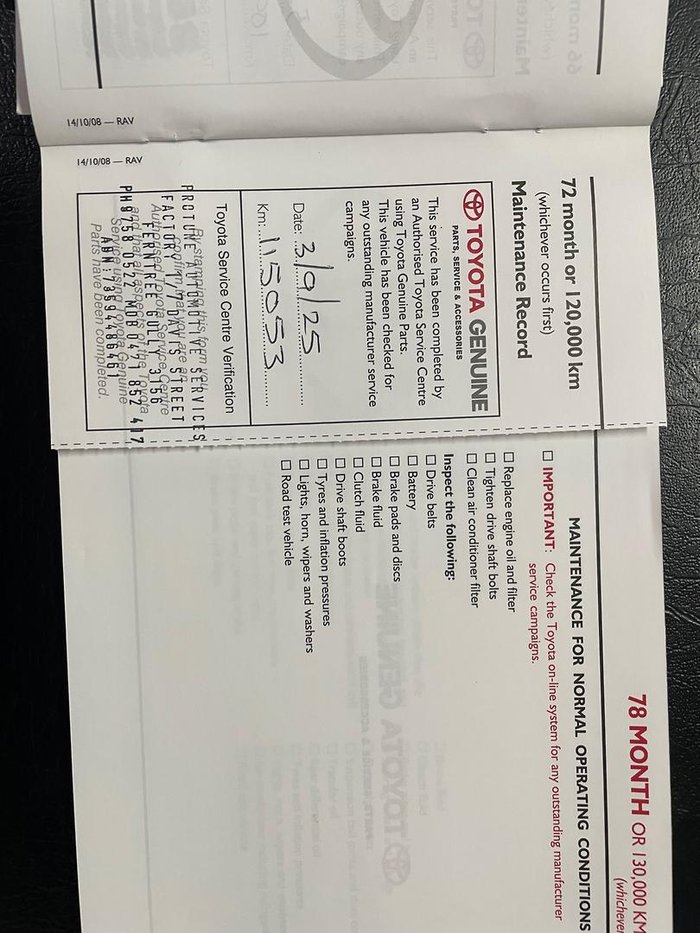 14/10/08 — RAV
14/10/08 — RAV
72 month or 120,000 km
(whichever occurs first)
Maintenance Record
TOYOTA GENUINE
PARTS, SERVICE & ACCESSORIES
This service has been completed by
an Authorised Toyota Service Centre
using Toyota Genuine Parts.
This vehicle has been checked for
any outstanding manufacturer service
campaigns.
Date: 3/9/25
Km: 115053
Toyota Service Centre Verification
By stamping this form you
confirm that you are an
Authorised Toyota Service Centre
and that all aspects of the Toyota
Service using Toyota Genuine
Parts have been completed.
PROTUNE AUTOMOTIVE SERVICES
FACTORY 1/7 DAVIS STREET
FERNTREE GULLY 3156
78 MONTH OR 130,000 KM
(whichever
MAINTENANCE FOR NORMAL OPERATING CONDITIONS
IMPORTANT: Check the Toyota on-line system for any outstanding manufacturer
service campaigns.
Replace engine oil and filter
Tighten drive shaft bolts
Clean air conditioner filter
Inspect the following:
Drive belts
Battery
Brake pads and discs
Brake fluid
Clutch fluid
Drive shaft boots
Tyres and inflation pressures
Lights, horn, wipers and washers
Road test vehicle